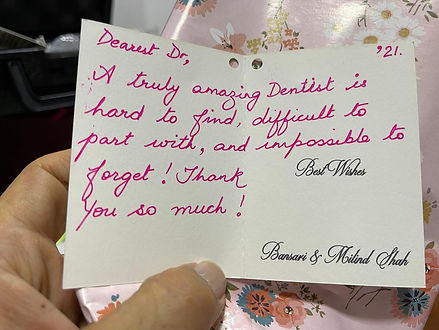 Dearest Dr,
'21.
A truly amazing Dentist is
hard to find, difficult to
part with, and impossible to
forget! Thank
you so much!
Best Wishes
Bansari & Milind Shah